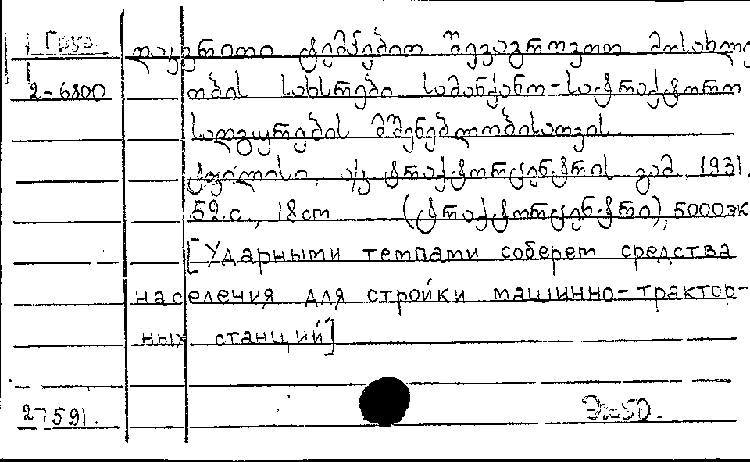 Груз.
დაკვრითი ტემპებით შევაგროვოთ მოსახლე
2-6800 ობის სახსრები სამანქანო-სატრაქტორო
სადგურების მშენებლობისათვის
ტფილისი, ა/კ ტრაქტორცენტრის გამ. 1931.
52 с., 18 cm (ტრაქტორცენტრი), 5000 эк
[Ударными темпами соберем средства
населения для стройки машинно-трактор-
ных станций]
27591. Э-50.